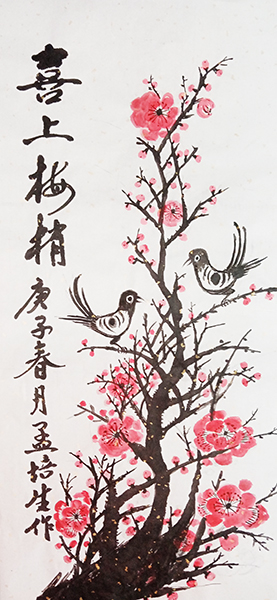 喜上梅梢
庚子春月孟培生作